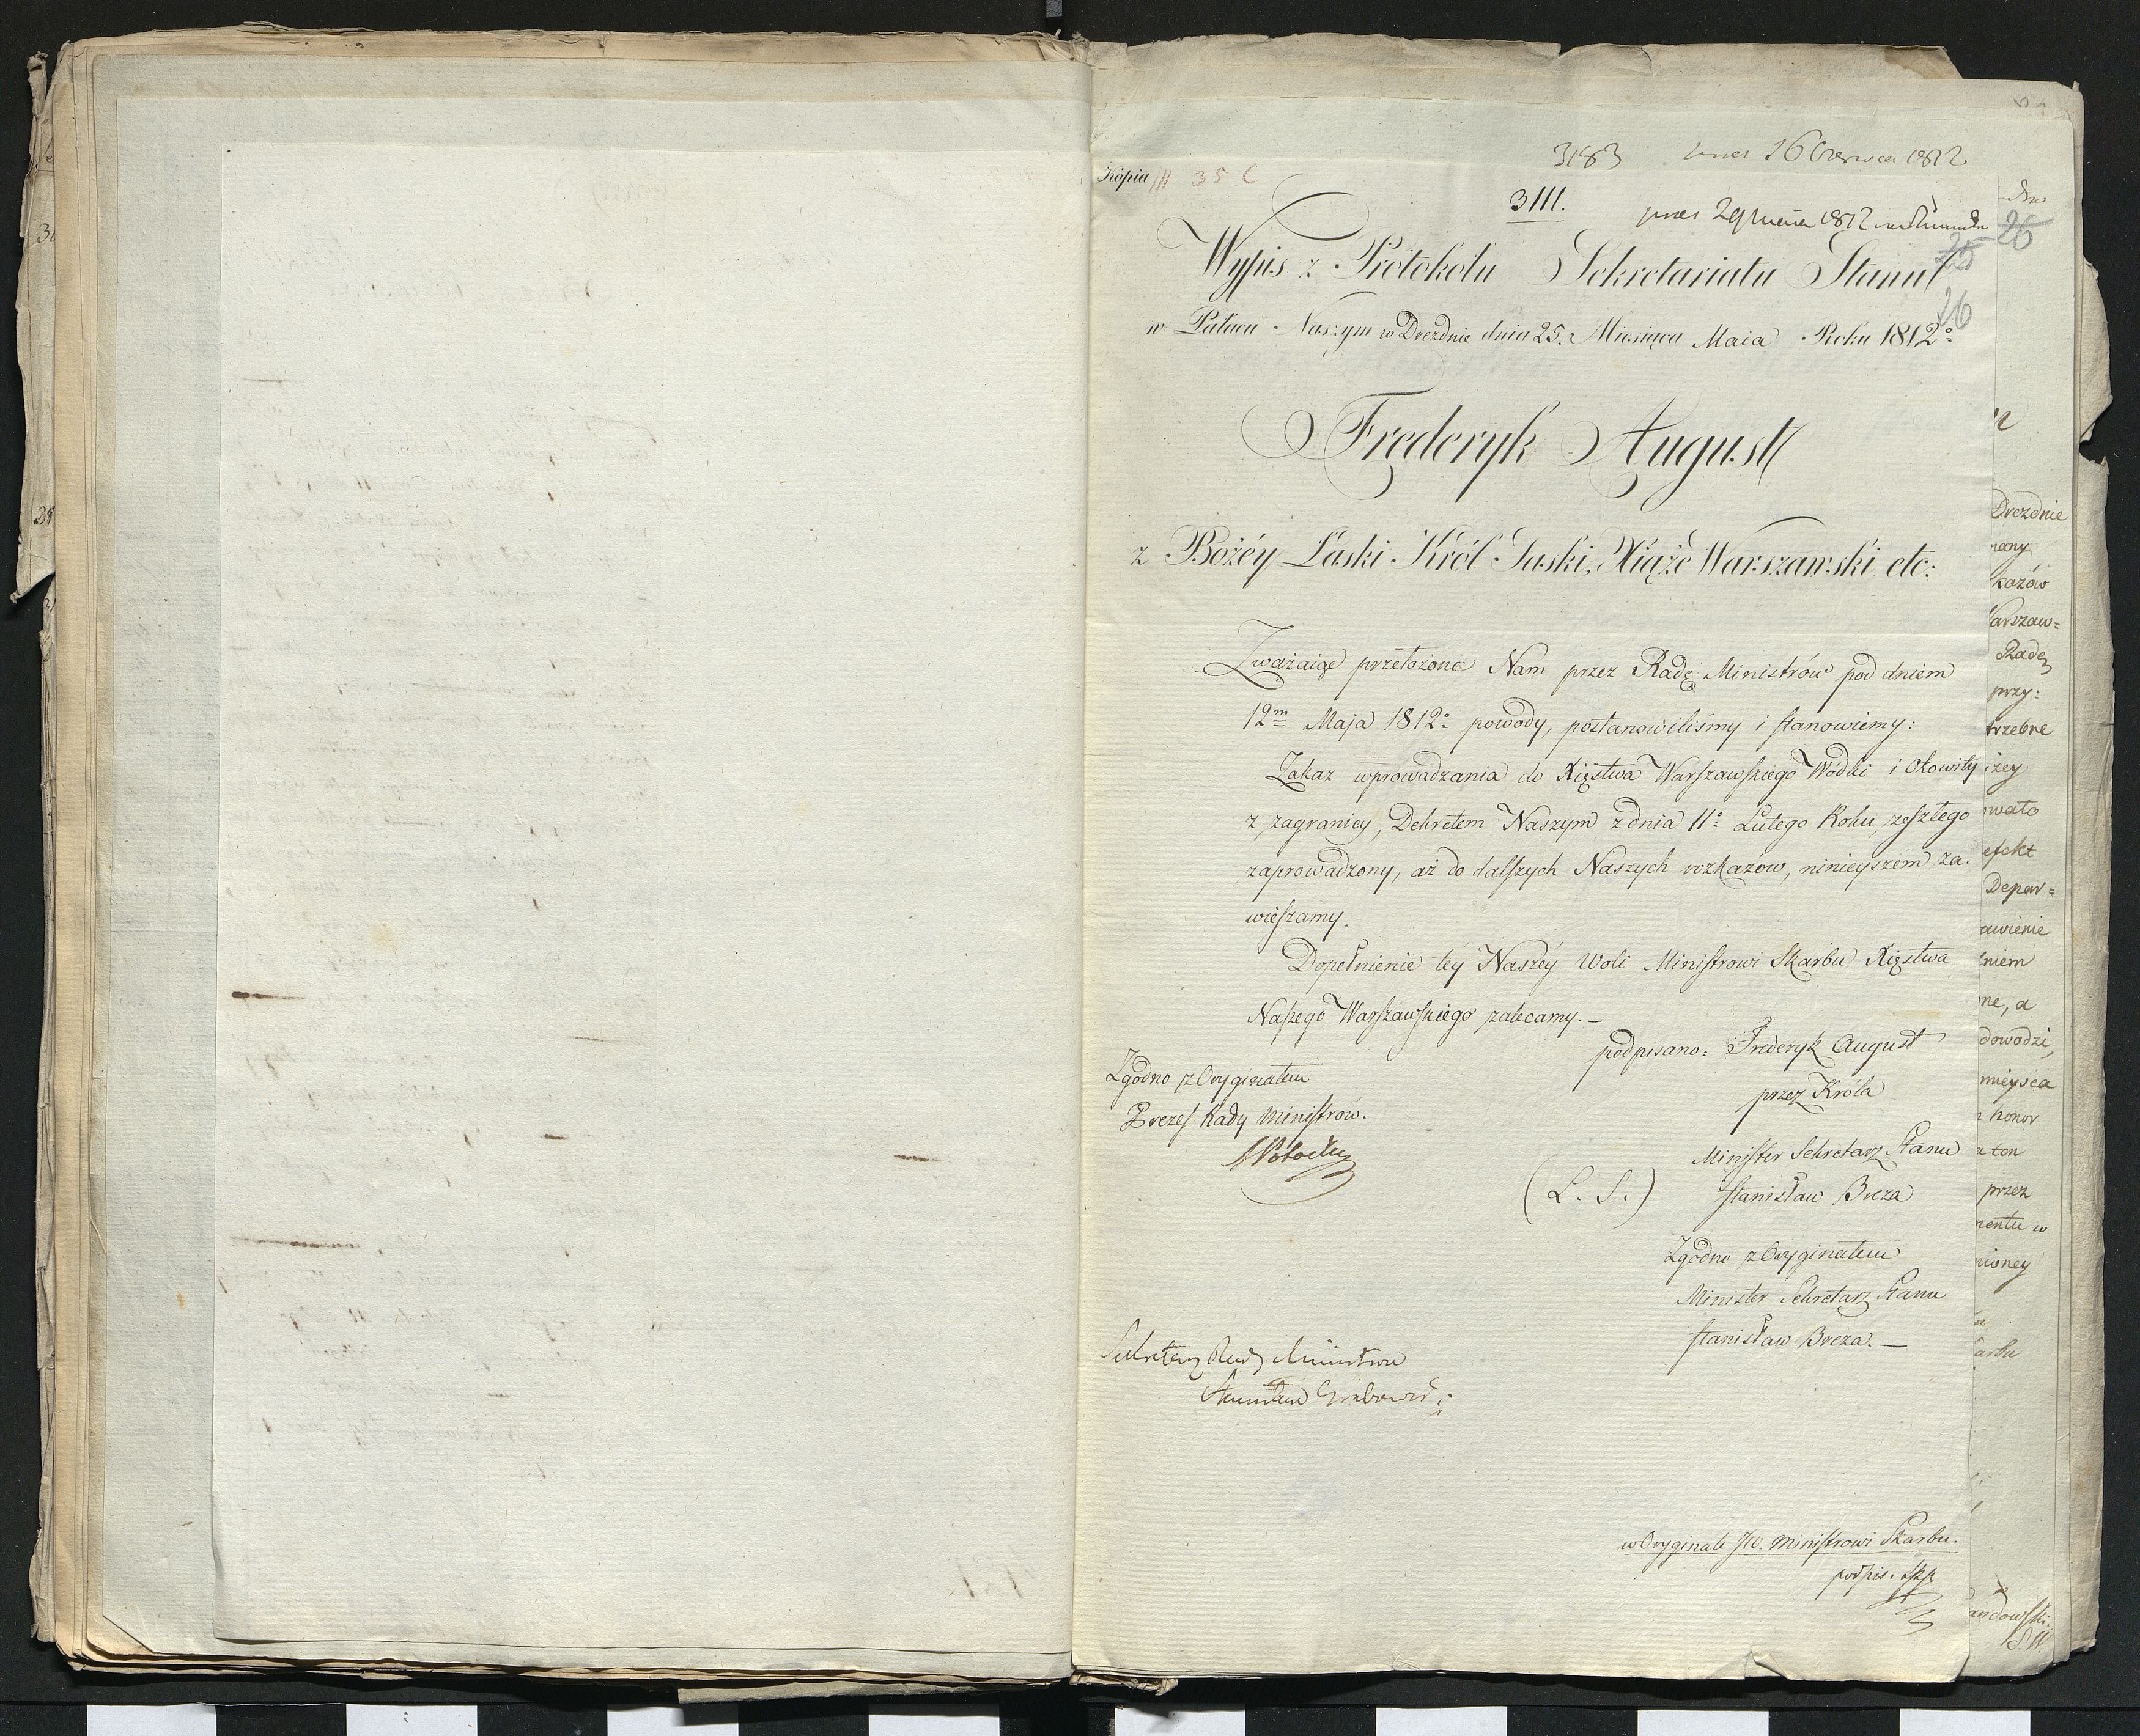 3183 16 Czerwca 1812
Kopia III 35 C
3111.
29 1812
25
26
26
Wypis z Protokołu Sekretariatu Stanu
w Pałacu Naszym w Dreźnie dnia 25. Miesiąca Maia Roku 1812°
Frederyk August
z Bożéy Łaski Król Saski, Xiąże Warszawski etc:
Zważaiąc przełożone Nam przez Radę Ministrów pod dniem
12m Maja 1812° powody, postanowiliśmy i stanowiemy:
Zakaz wprowadzania do Xięstwa Warszawskiego Wodki i Okowity
z zagranicy, Dekretem Naszym z dnia 11° Lutego Roku zeszłego
zaprowadzony, aż do dalszych Naszych rozkazów, ninieyszem za-
wieszamy.
Dopełnienie téy Naszéy Woli Ministrowi Skarbu Xięstwa
Naszego Warszawskiego zalecamy.—
podpisano: Frederyk August
przez Króla
Minister Sekretarz Stanu
(L. S.) Stanisław Breza
Zgodno z Oryginałem
Minister Sekretarz Stanu
Stanisław Breza.—
Zgodno z Oryginałem
Prezes Rady Ministrów.
SPotocki
Sekretarz Rady Ministrów
Stanisław Grabowski
w Oryginale JW. Ministrowi Skarbu.
podpis.
Dreznie
kazów
arszaw=
Radę
przy=
trzebne
żey
owało
efekt
Depar=
awienie
dniem
ne, a
dowodzi,
mieysca
honor
ton
przez
mentu w
nioney
arbu